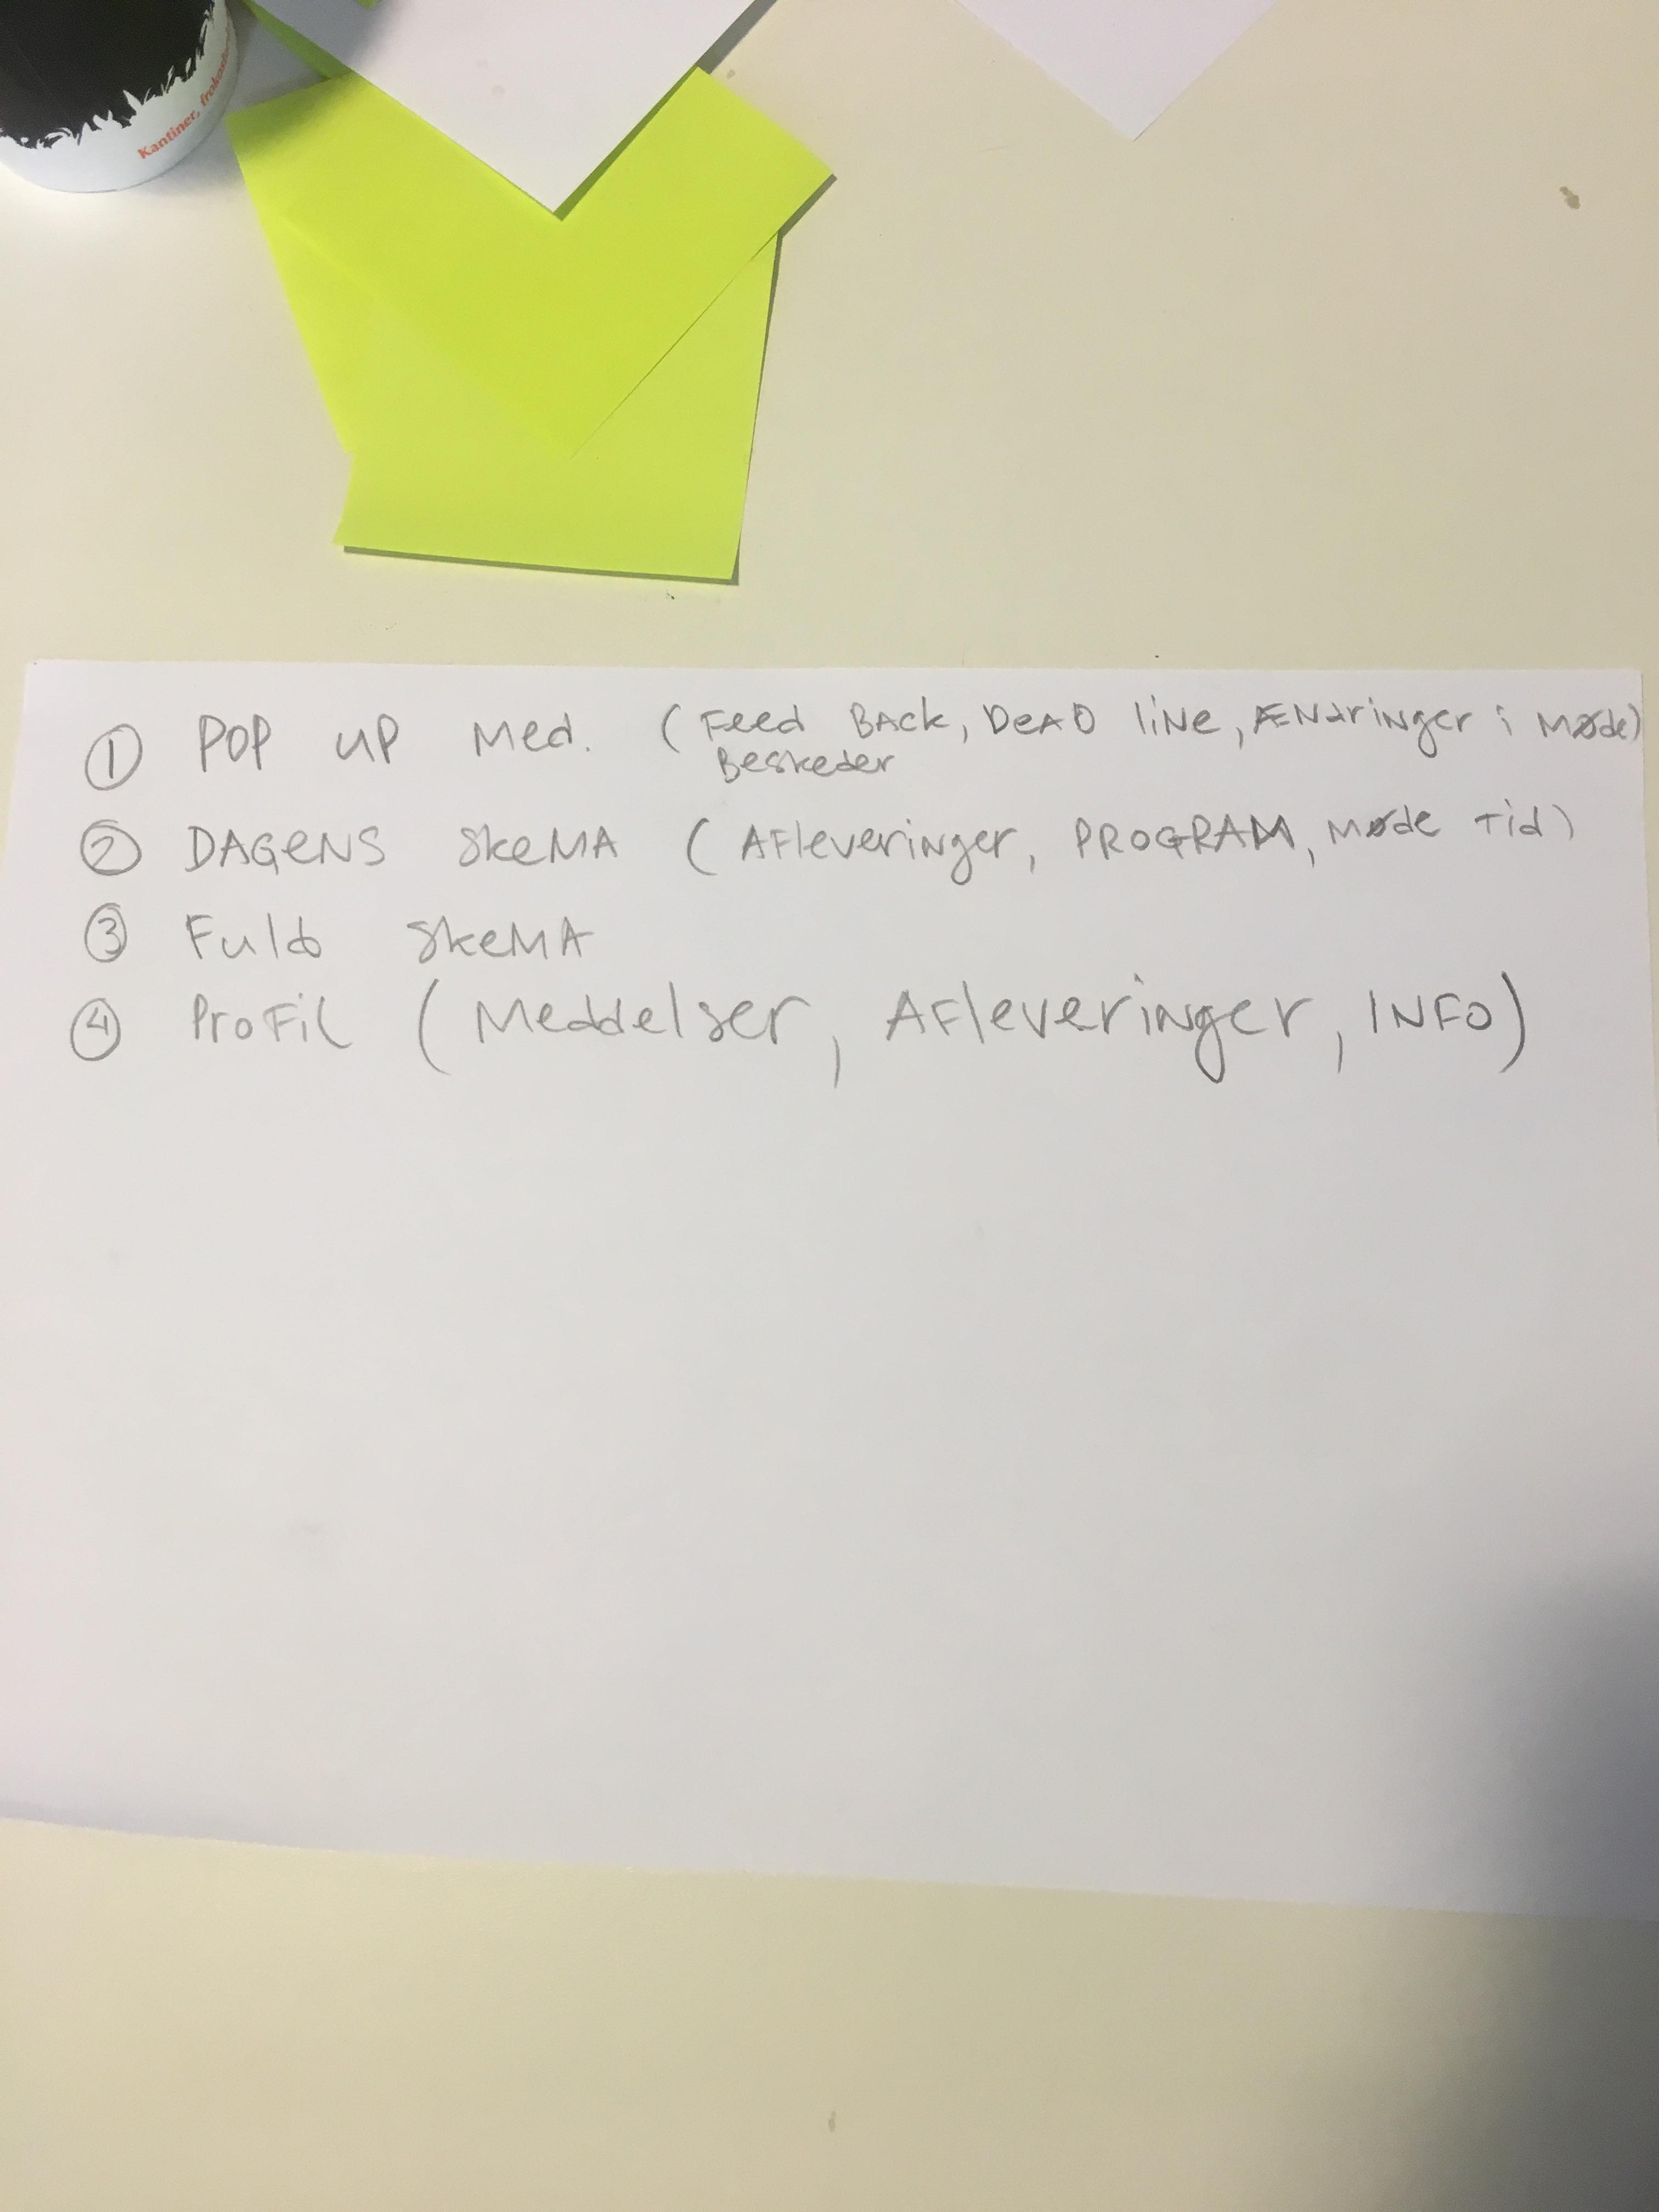 Kantiner, frokost
① POP UP Med. (Feed BACK, DeAD liNe, ÆNdringer i Møde)
Beskeder
② DAGENS SkeMA (AFleveringer, PROGRAM, Møde Tid)
③ Fuld SkeMA
④ ProFil (Meddelser, AFleveringer, INFO)